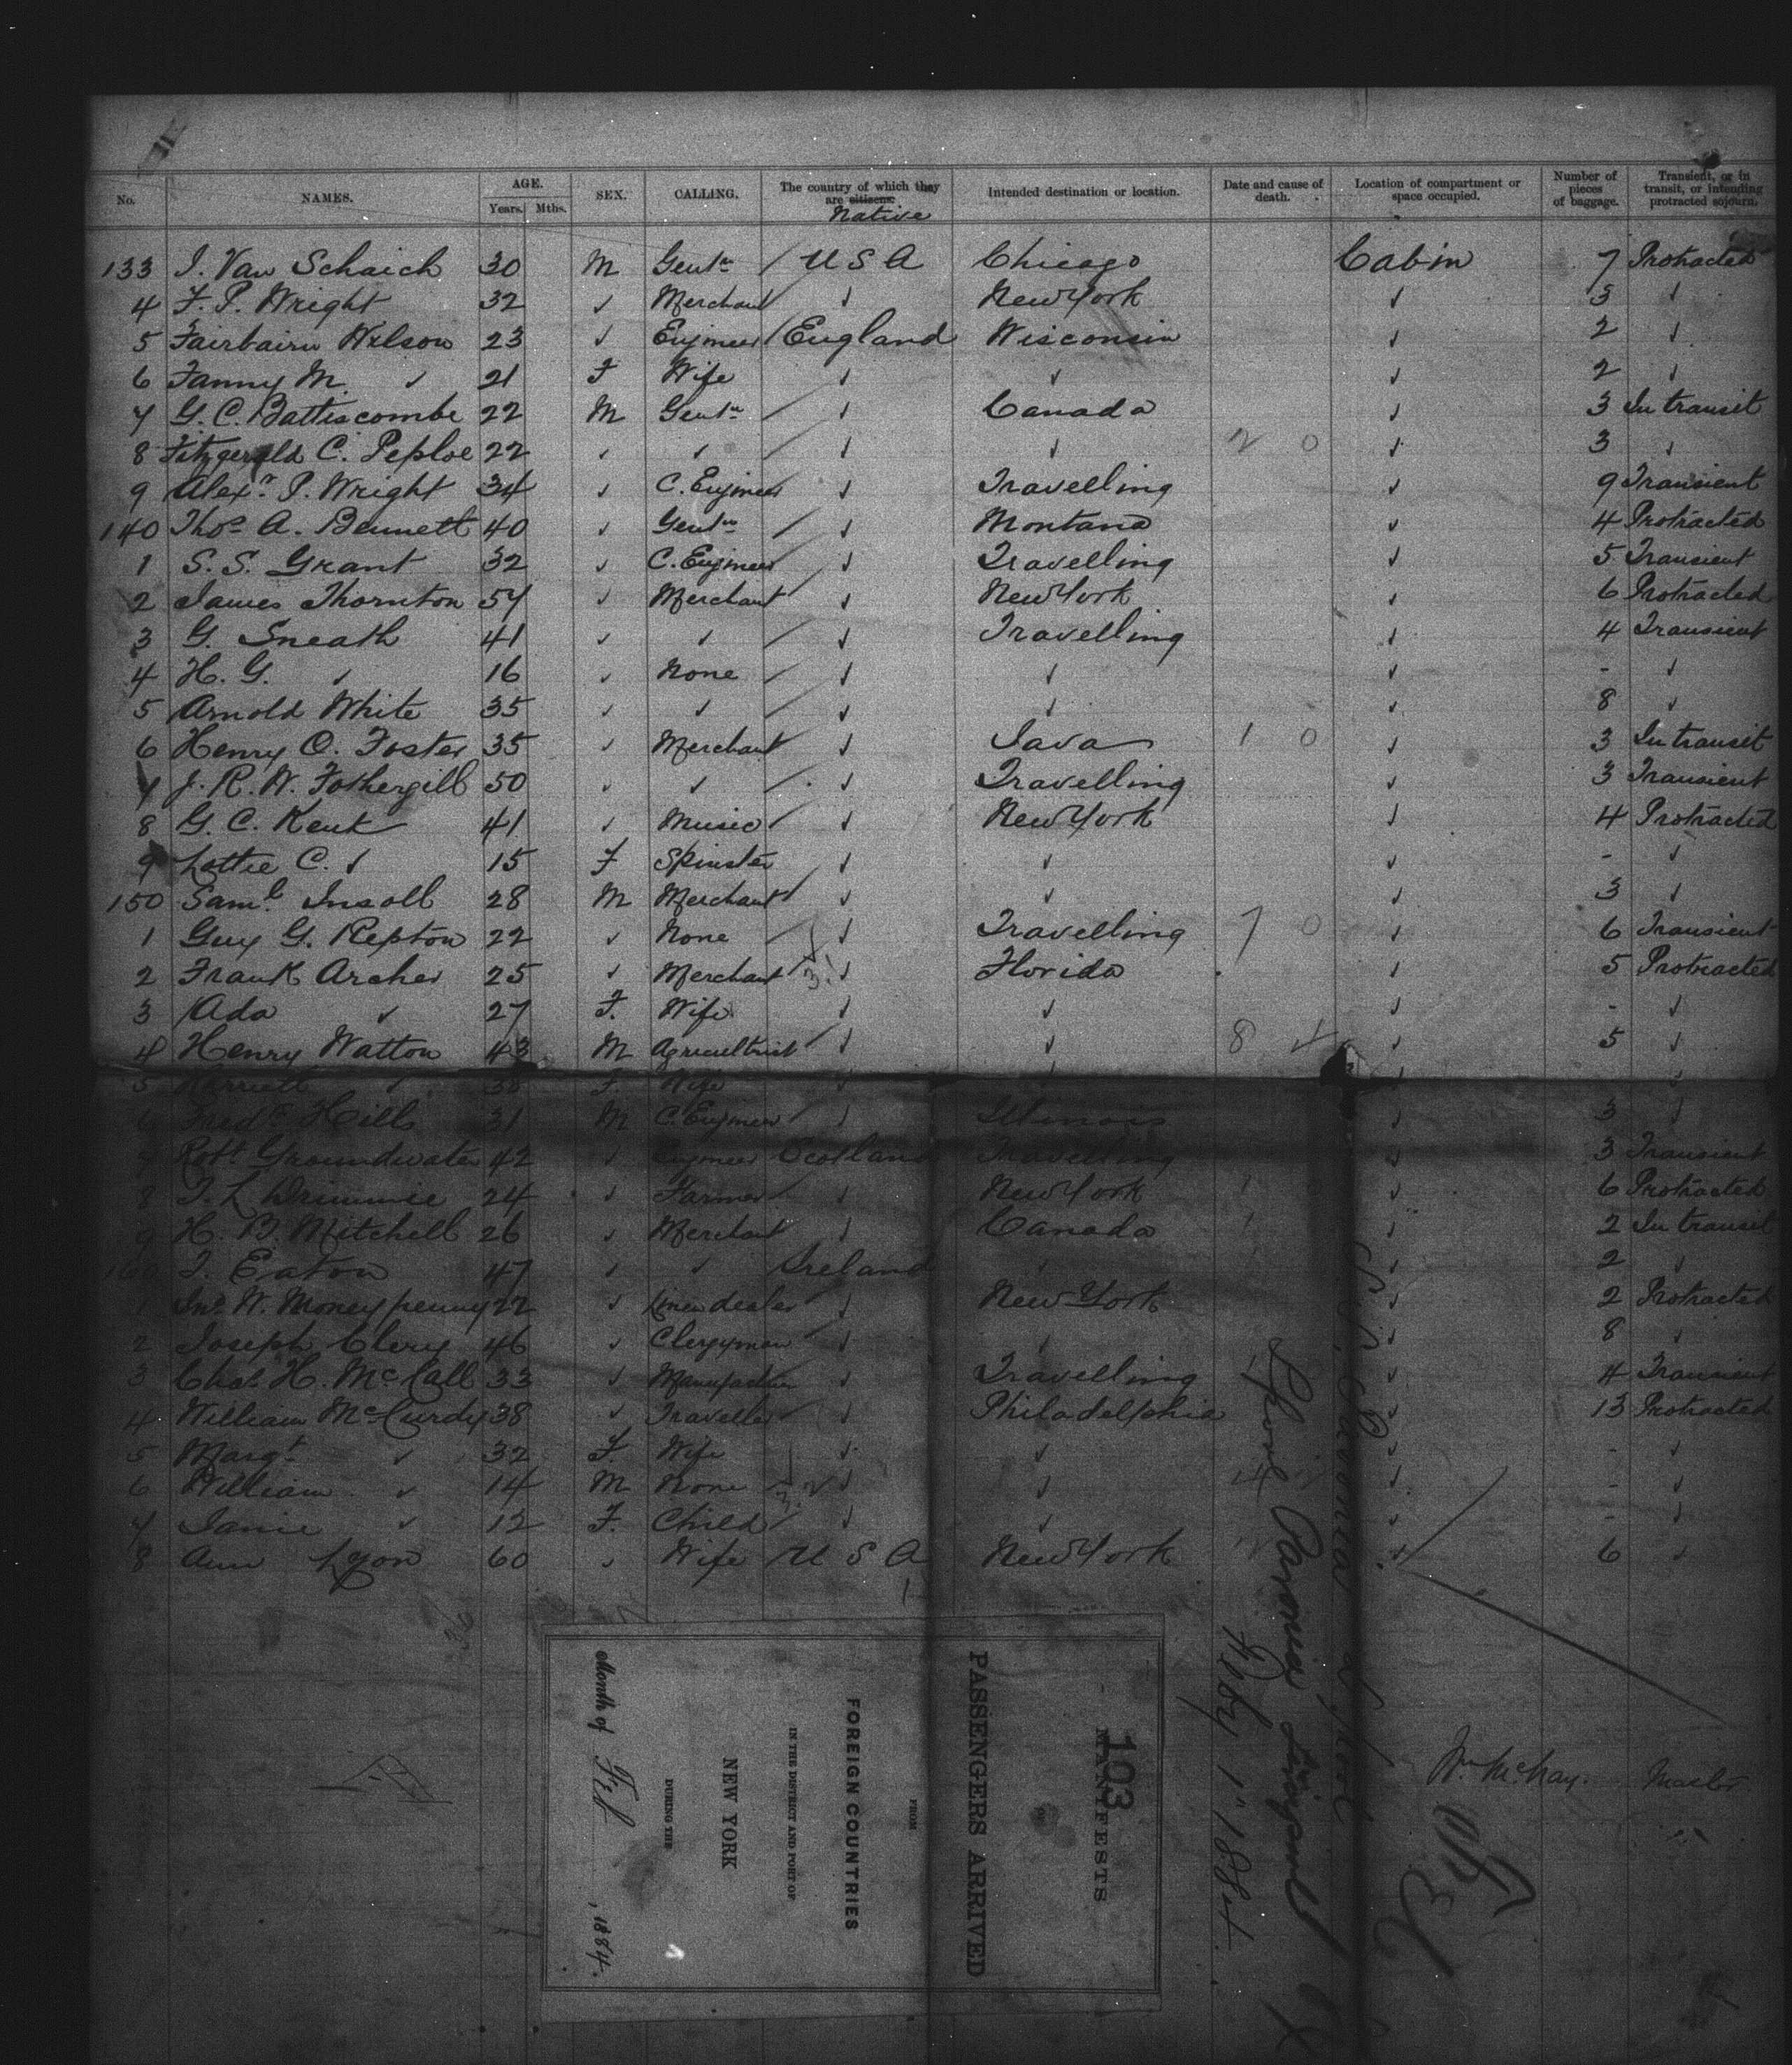 No. NAMES. AGE. Years. Mths. SEX. CALLING. The country of which they are citizens. Native Intended destination or location. Date and cause of death. Location of compartment or space occupied. Number of pieces of baggage. Transient, or in transit, or intending protracted sojourn.
133 I. Van Schaick 30 M Gentn / U S A Chicago Cabin 7 Protracted
4 F. P. Wright 32 ✓ Merchant / ✓ New York ✓ 3 ✓
5 Fairbairn Wilson 23 ✓ Engineer / England Wisconsin ✓ 2 ✓
6 Fanny M. ✓ 21 F Wife ✓ ✓ ✓ 2 ✓
7 G. C. Battiscombe 22 M Gentn / ✓ Canada ✓ 3 In transit
8 Fitzgerald C. Peploe 22 ✓ ✓ / ✓ ✓ 2 0 ✓ 3 ✓
9 Alexr P. Wright 34 ✓ C. Engineer ✓ Travelling ✓ 9 Transient
140 Thos A. Bennett 40 ✓ Gentn / ✓ Montana ✓ 4 Protracted
1 S. S. Grant 32 ✓ C. Engineer / ✓ Travelling ✓ 5 Transient
2 James Thornton 57 ✓ Merchant / ✓ New York ✓ 6 Protracted
3 G. Sneath 41 ✓ ✓ / ✓ Travelling ✓ 4 Transient
4 H. G. ✓ 16 ✓ None / ✓ ✓ ✓ - ✓
5 Arnold White 35 ✓ ✓ / ✓ ✓ ✓ 8 ✓
6 Henry O. Foster 35 ✓ Merchant / ✓ Java 1 0 ✓ 3 In transit
7 J. R. W. Fothergill 50 ✓ ✓ / ✓ Travelling ✓ 3 Transient
8 G. C. Kent 41 ✓ Music / ✓ New York ✓ 4 Protracted
9 Lottie C. ✓ 15 F Spinster ✓ ✓ ✓ - ✓
150 Saml Insoll 28 M Merchant / ✓ ✓ ✓ 3 ✓
1 Guy G. Repton 22 ✓ None / ✓ Travelling 7 0 ✓ 6 Transient
2 Frank Archer 25 ✓ Merchant / ✓ Florida ✓ 5 Protracted
3 Ada ✓ 27 F. Wife ✓ ✓ ✓ - ✓
4 Henry Watton 43 M Agricultrist / ✓ ✓ 8 4 ✓ 5 ✓
5 Harriett ✓ 38 F. Wife ✓ ✓ ✓ ✓
6 Fredc Hills 31 M C. Engineer / ✓ Illinois ✓ 3 ✓
7 Robt Groundwater 42 ✓ Engineer Scotland Travelling ✓ 3 Transient
8 T. L. Drimmie 24 ✓ Farmer / ✓ New York ✓ 6 Protracted
9 H. B. Mitchell 26 ✓ Merchant / ✓ Canada ✓ 2 In transit
160 T. Eaton 47 ✓ ✓ Ireland ✓ ✓ 2 ✓
1 Jno W. Moneypenny 22 ✓ Linen dealer ✓ New York ✓ 2 Protracted
2 Joseph Clery 46 ✓ Clergyman ✓ ✓ ✓ 8 ✓
3 Chas H. McCall 33 ✓ ✓ Travelling ✓ 4 Transient
4 William McCurdy 38 ✓ Traveller ✓ Philadelphia ✓ 13 Protracted
5 Margt ✓ 32 F. Wife ✓ ✓ ✓ - ✓
6 William ✓ 14 M None ✓ ✓ ✓ - ✓
7 Janie ✓ 12 F. Child / ✓ ✓ ✓ - ✓
8 Ann Lyon 60 ✓ Wife / U S A New York ✓ 6 ✓
Wm McKay. Master
103
MANIFESTS
OF
PASSENGERS ARRIVED
FROM
FOREIGN COUNTRIES
IN THE DISTRICT AND PORT OF
NEW YORK
DURING THE
Month of Feb, 1884.
Liverpool
Feby 1st 1884